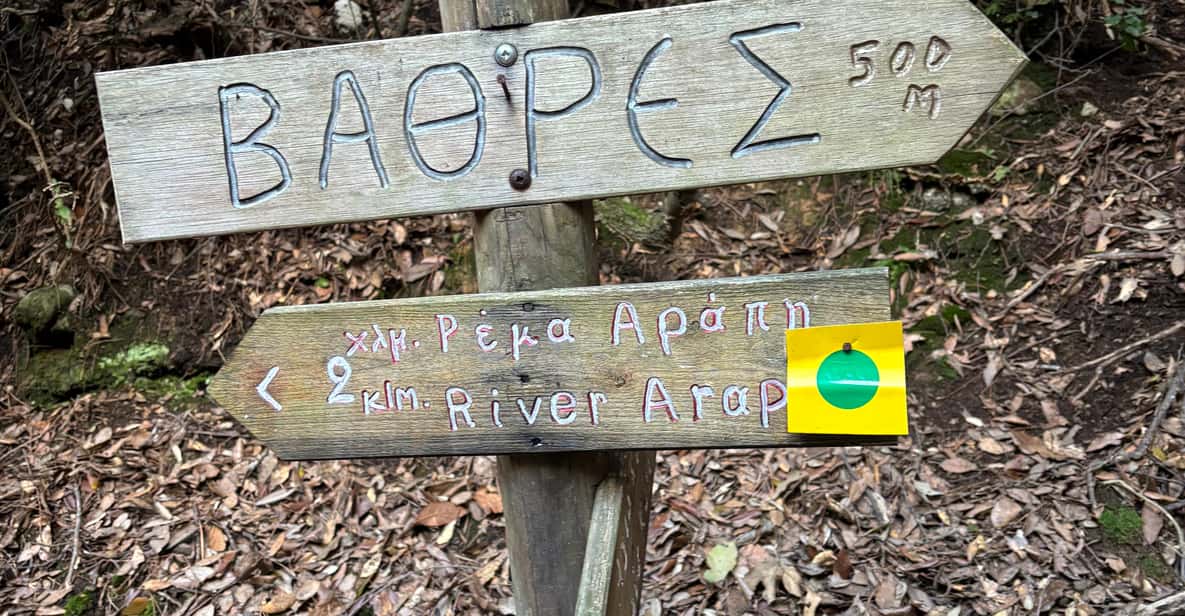 ΒΑΘΡΕΣ 500 M
< 2 χλμ. Ρέμα Αράπη
κlm. River Arap